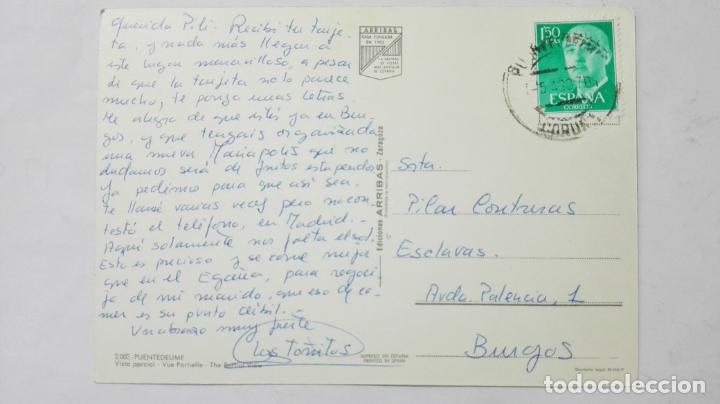 Querida Pili: Recibí tu tarje-
ta, y nada más llegar a
este lugar maravilloso, a pesar
de que la tarjeta no lo parece
mucho, te pongo unas letras.
Me alegra de que estés ya en Bur-
gos, y que tengais organizada
una nueva Mariapolis que no
dudamos será de frutos estupendos
ya pedimos para que así sea.
Te llamé varias veces pero no con-
testó el teléfono, en Madrid.-
Aquí solamente nos falta el sol.
Esto es precioso y se come mejor
que en el España, para regoci-
jo de mi marido, que eso de co-
mer es su punto débil.-
Un abrazo muy fuerte
Los Toñitos
2.060.-PUENTEDEUME
Vista parcial - Vue Partielle - The Partial View
ARRIBAS
CASA FUNDADA
EN 1902
Ediciones ARRIBAS - Zaragoza
IMPRESO EN ESPAÑA
PRINTED IN SPAIN
1'50
PTAS
ESPAÑA
CORREOS
CORUÑA
Srta.
Pilar Contreras
Esclavas.
Avda. Palencia, 1
Burgos
todocoleccion
todocoleccion.net